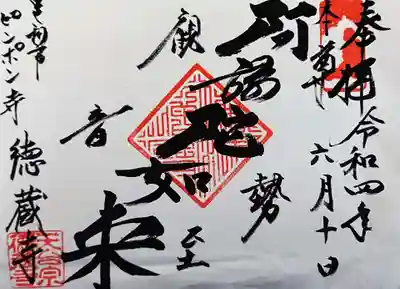 奉拝 令和四年
本尊 六月十日
阿弥陀如来
勢至
観音
足利市
ピンポン寺
徳蔵寺